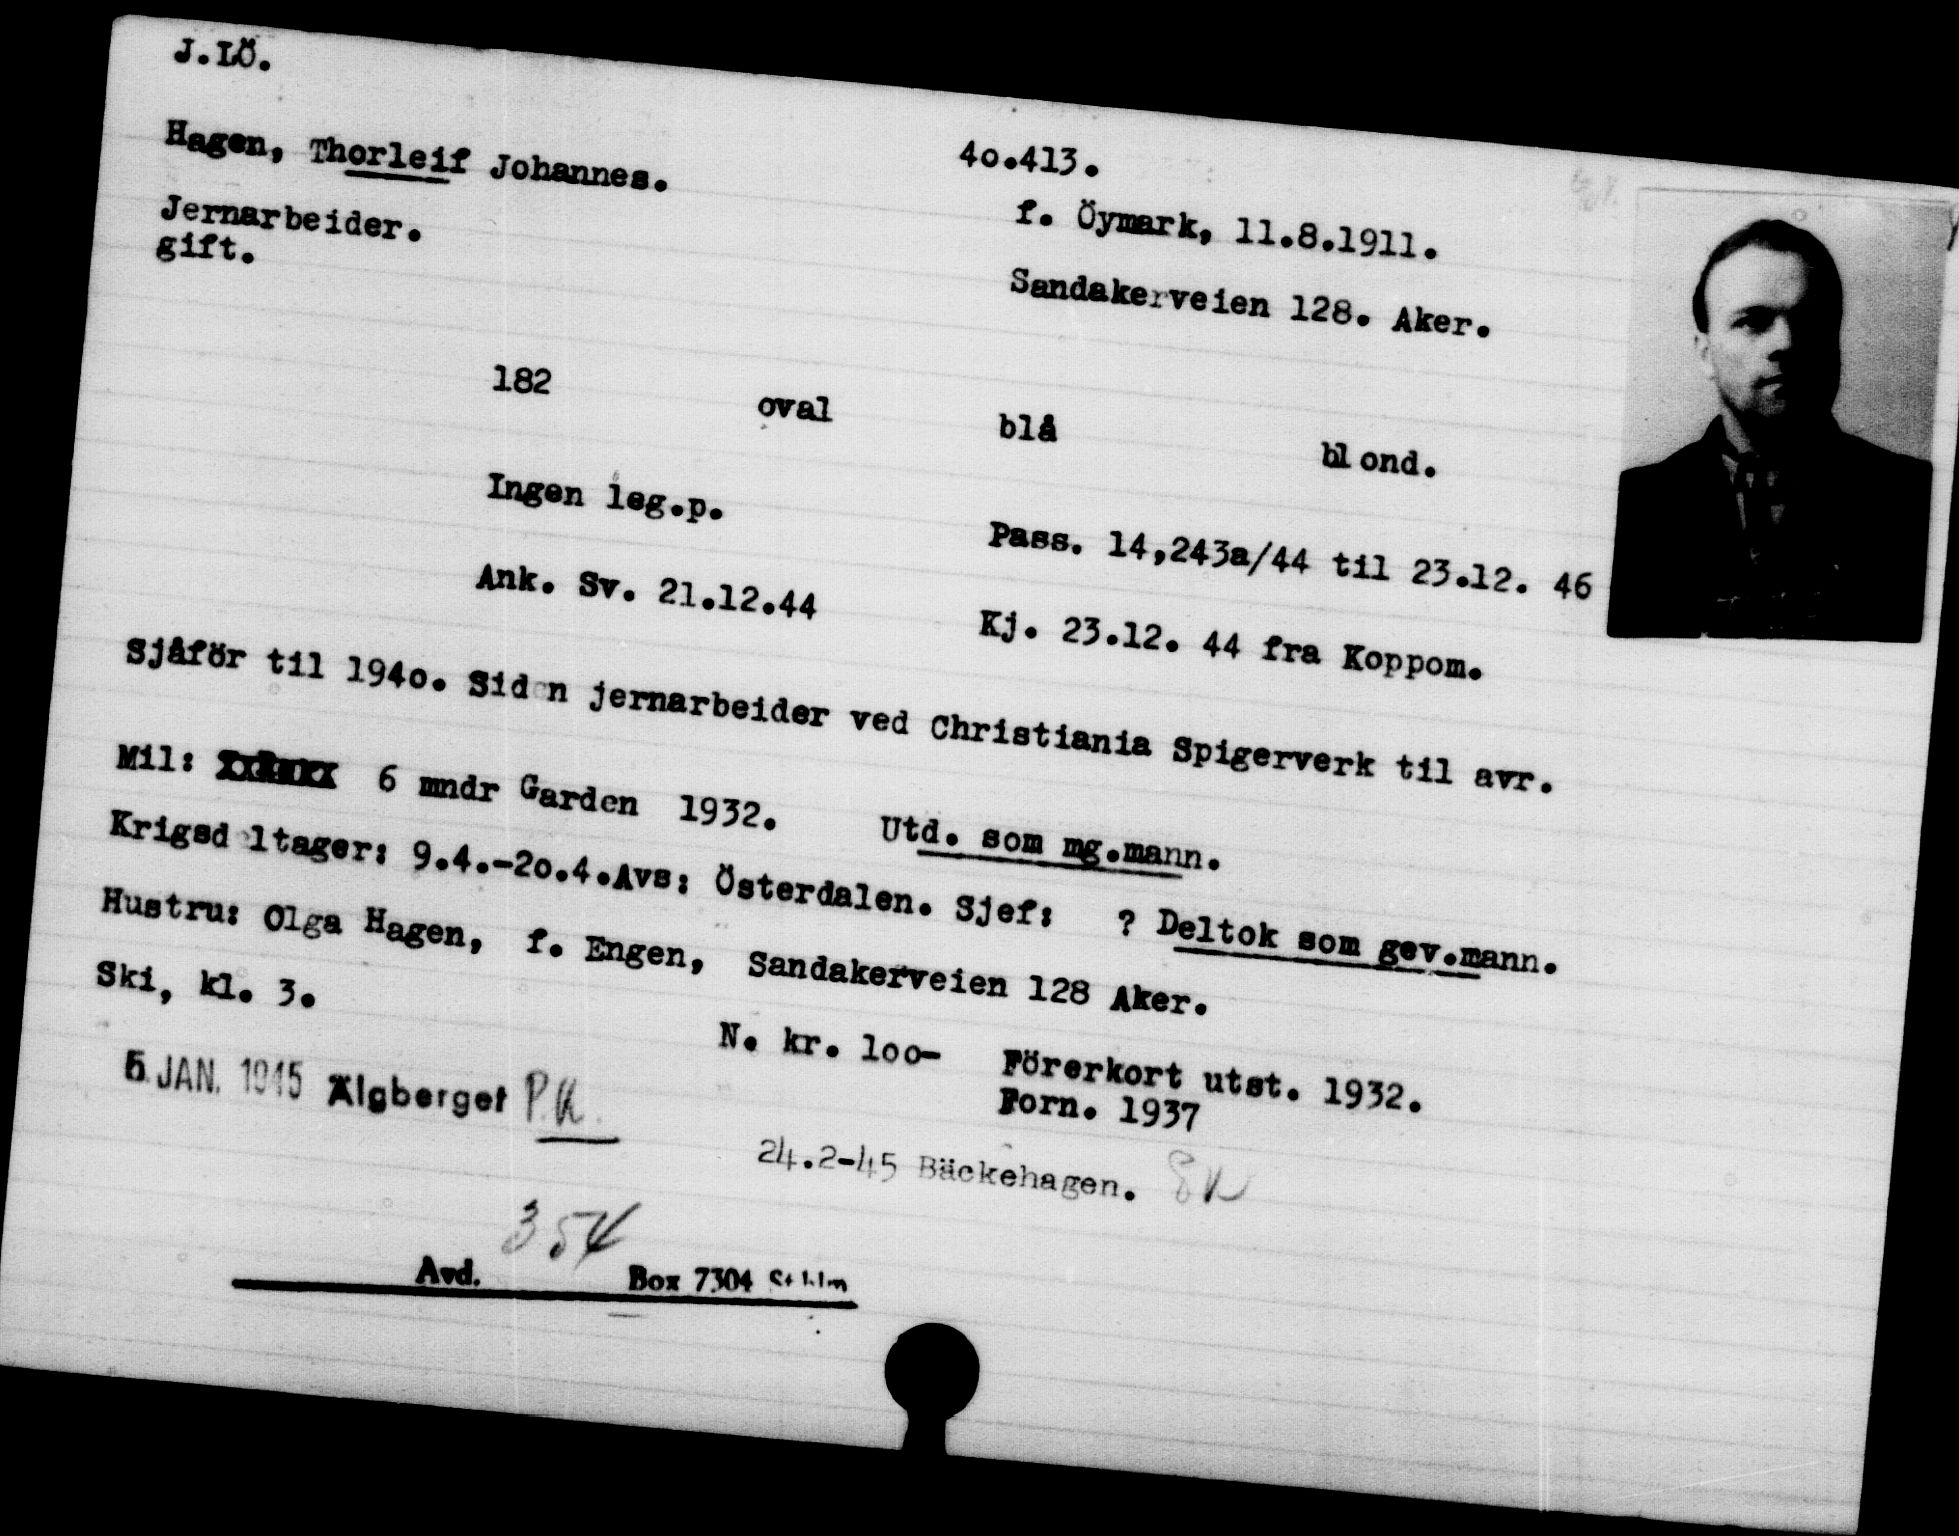 J.LÖ.
Hagen, Thorleif Johannes. 4o.413.
Jernarbeider. f. Öymark, 11.8.1911.
gift. Sandakerveien 128. Aker.
182 oval blå blond.
Ingen leg.p. Pass. 14,243a/44 til 23.12. 46
Ank. Sv. 21.12.44 Kj. 23.12. 44 fra Koppom.
Sjåför til 194o. Siden jernarbeider ved Christiania Spigerverk til avr.
Mil: 6 mndr Garden 1932. Utd. som mg.mann.
Krigsdeltager: 9.4.-2o.4.Avs: Österdalen. Sjef: ? Deltok som gev.mann.
Hustru: Olga Hagen, f. Engen, Sandakerveien 128 Aker.
Ski, kl. 3. N. kr. 1oo- Förerkort utst. 1932.
Forn. 1937
5. JAN. 1945 Älgberget P.K.
24.2-45 Bäckehagen.
354
Avd. Box 7304 Sthlm